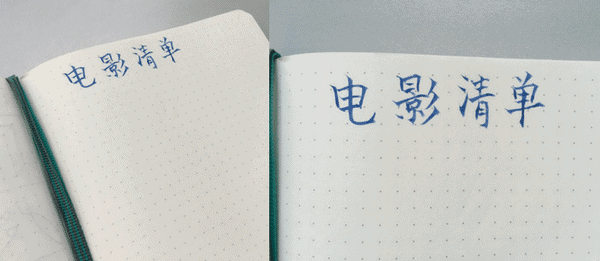 电影清单
电影清单